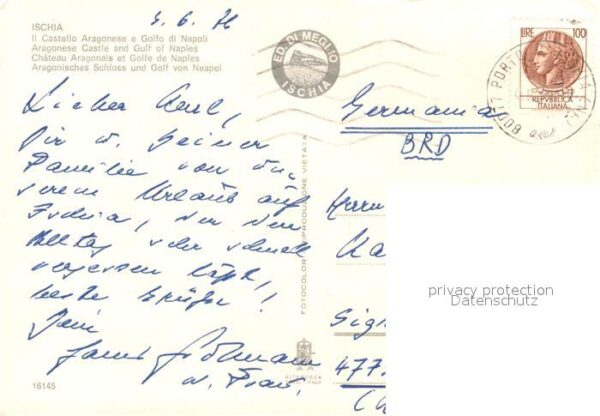 5. 6. 76
ISCHIA
Il Castello Aragonese e Golfo di Napoli
Aragonese Castle and Gulf of Naples
Château Aragonais et Golfe de Naples
Aragonisches Schloss und Golf von Neapel
ED. DI MEGLIO
ISCHIA
LIRE 100
REPVBBLICA
ITALIANA
80077 PORTO
Lieber Karl,
Dir u. Deiner
Familie von un-
serem Urlaub auf
Ischia, der den
Alltag sehr schnell
vergessen läßt,
beste Grüße!
Dein
u. Frau.
Germania
BRD
Herrn
Ka
477
FOTOCOLOR RIPRODUZIONE VIETATA
privacy protection
Datenschutz
16145
ITALY